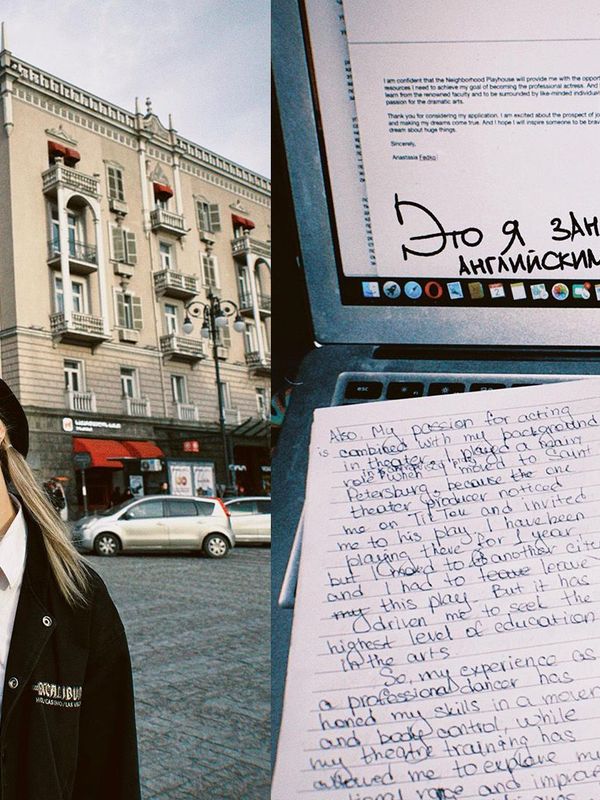 EXCALIBUR
HOTEL/CASINO/LAS
I am confident that the Neighborhood Playhouse will provide me with the
resources I need to achieve my goal of becoming the professional actress. And
learn from the renowned faculty and to be surrounded by like-minded
passion for the dramatic arts.
Thank you for considering my application. I am excited about the prospect of
and making my dreams come true. And I hope I will inspire someone to be
dream about huge things.
Sincerely,
Anastasia Fedko
Это я
английским
esc
Also. My passion for acting
is combined with my background
in theater. I played a main
role when I moved to Saint
Petersburg, because the one
theater producer noticed
me on TikTok and invited
me to his play. I have been
playing there for 1 year
but I moved to another city
and I had to leave
this play. But it has
driven me to seek the
highest level of education
in the arts.
So, my experience as
a professional dancer has
honed my skills in a
and body control, while
my theatre training has
allowed me to explore my